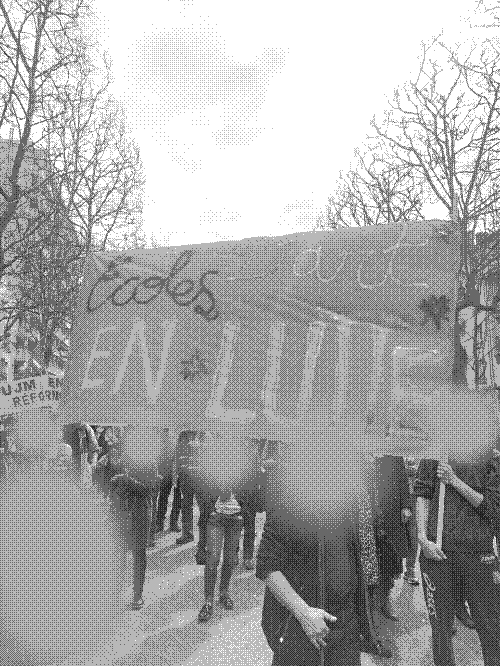 Écoles d'art
EN LUTTE
UJM EN
RÉFORM